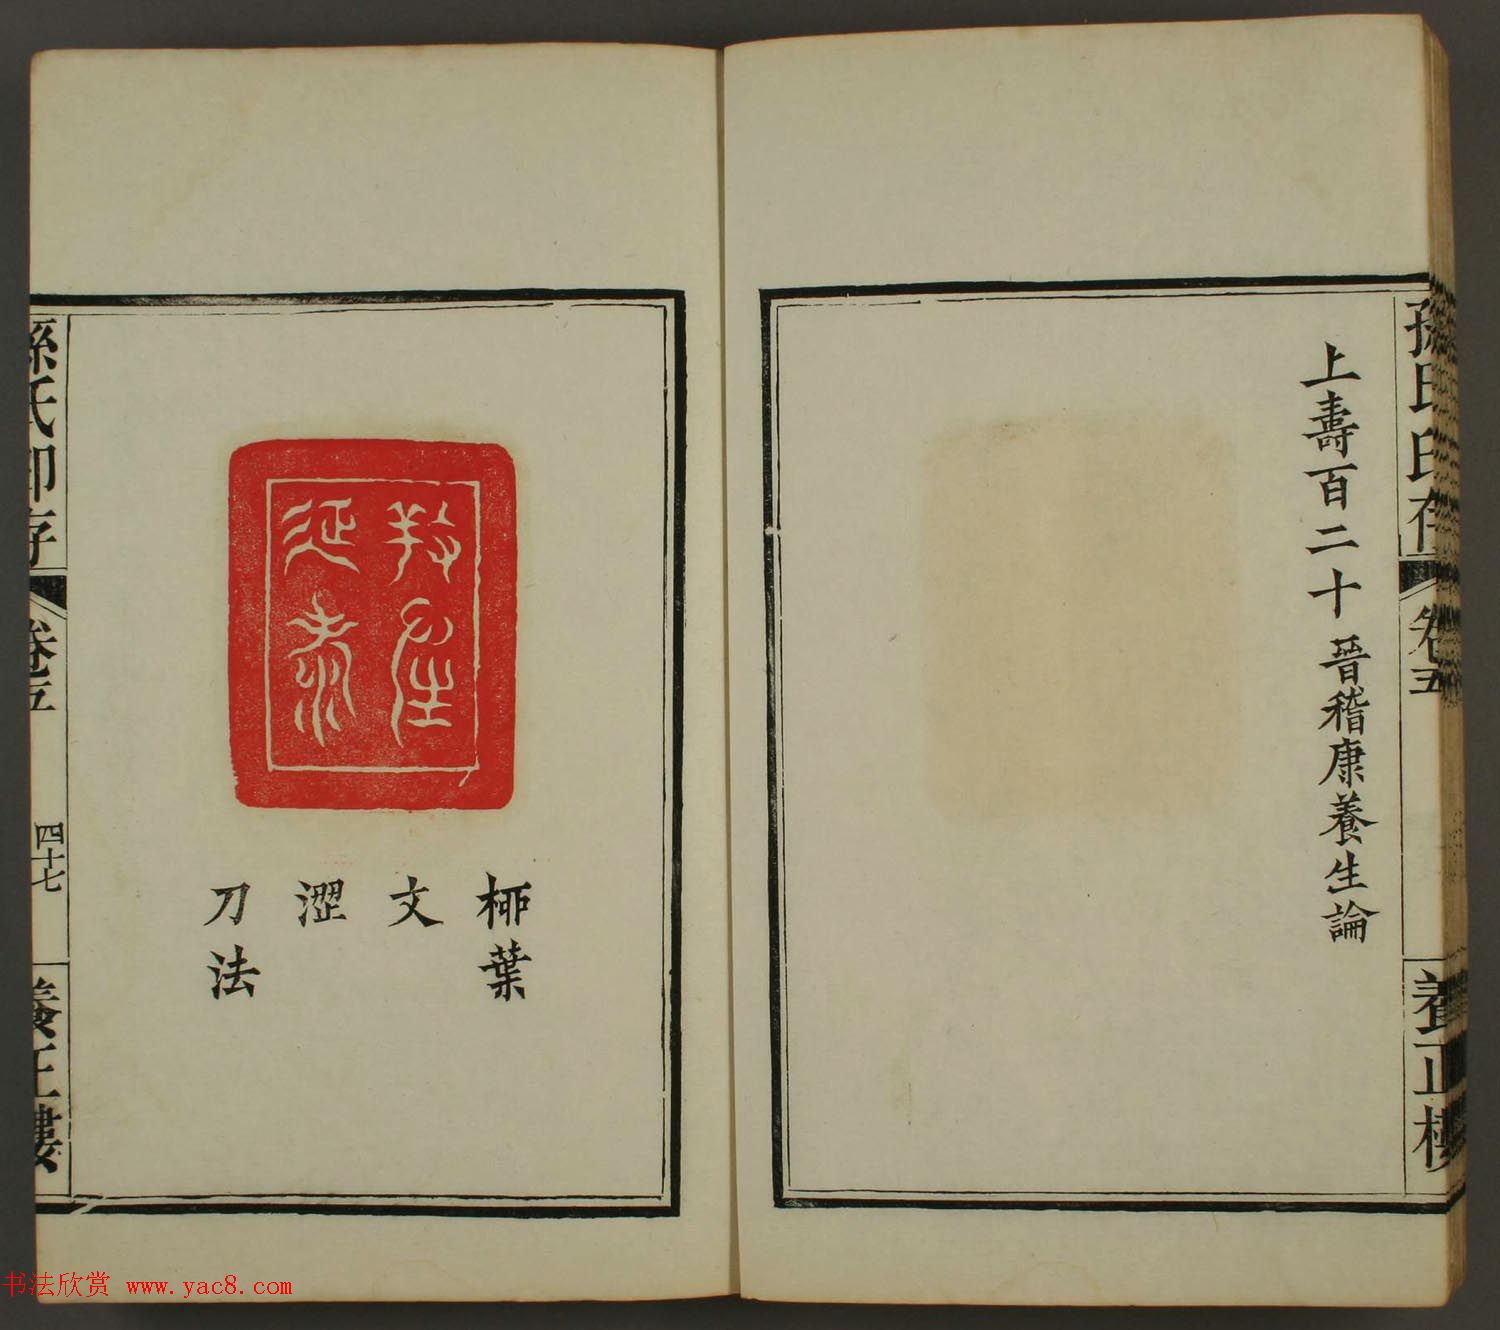 孫氏印存
卷五
養正樓
上壽百二十 晉稽康養生論
養性延壽
柳葉
文
澀
刀法
孫氏印存
卷五
四十七
養正樓
书法欣赏 www.yac8.com